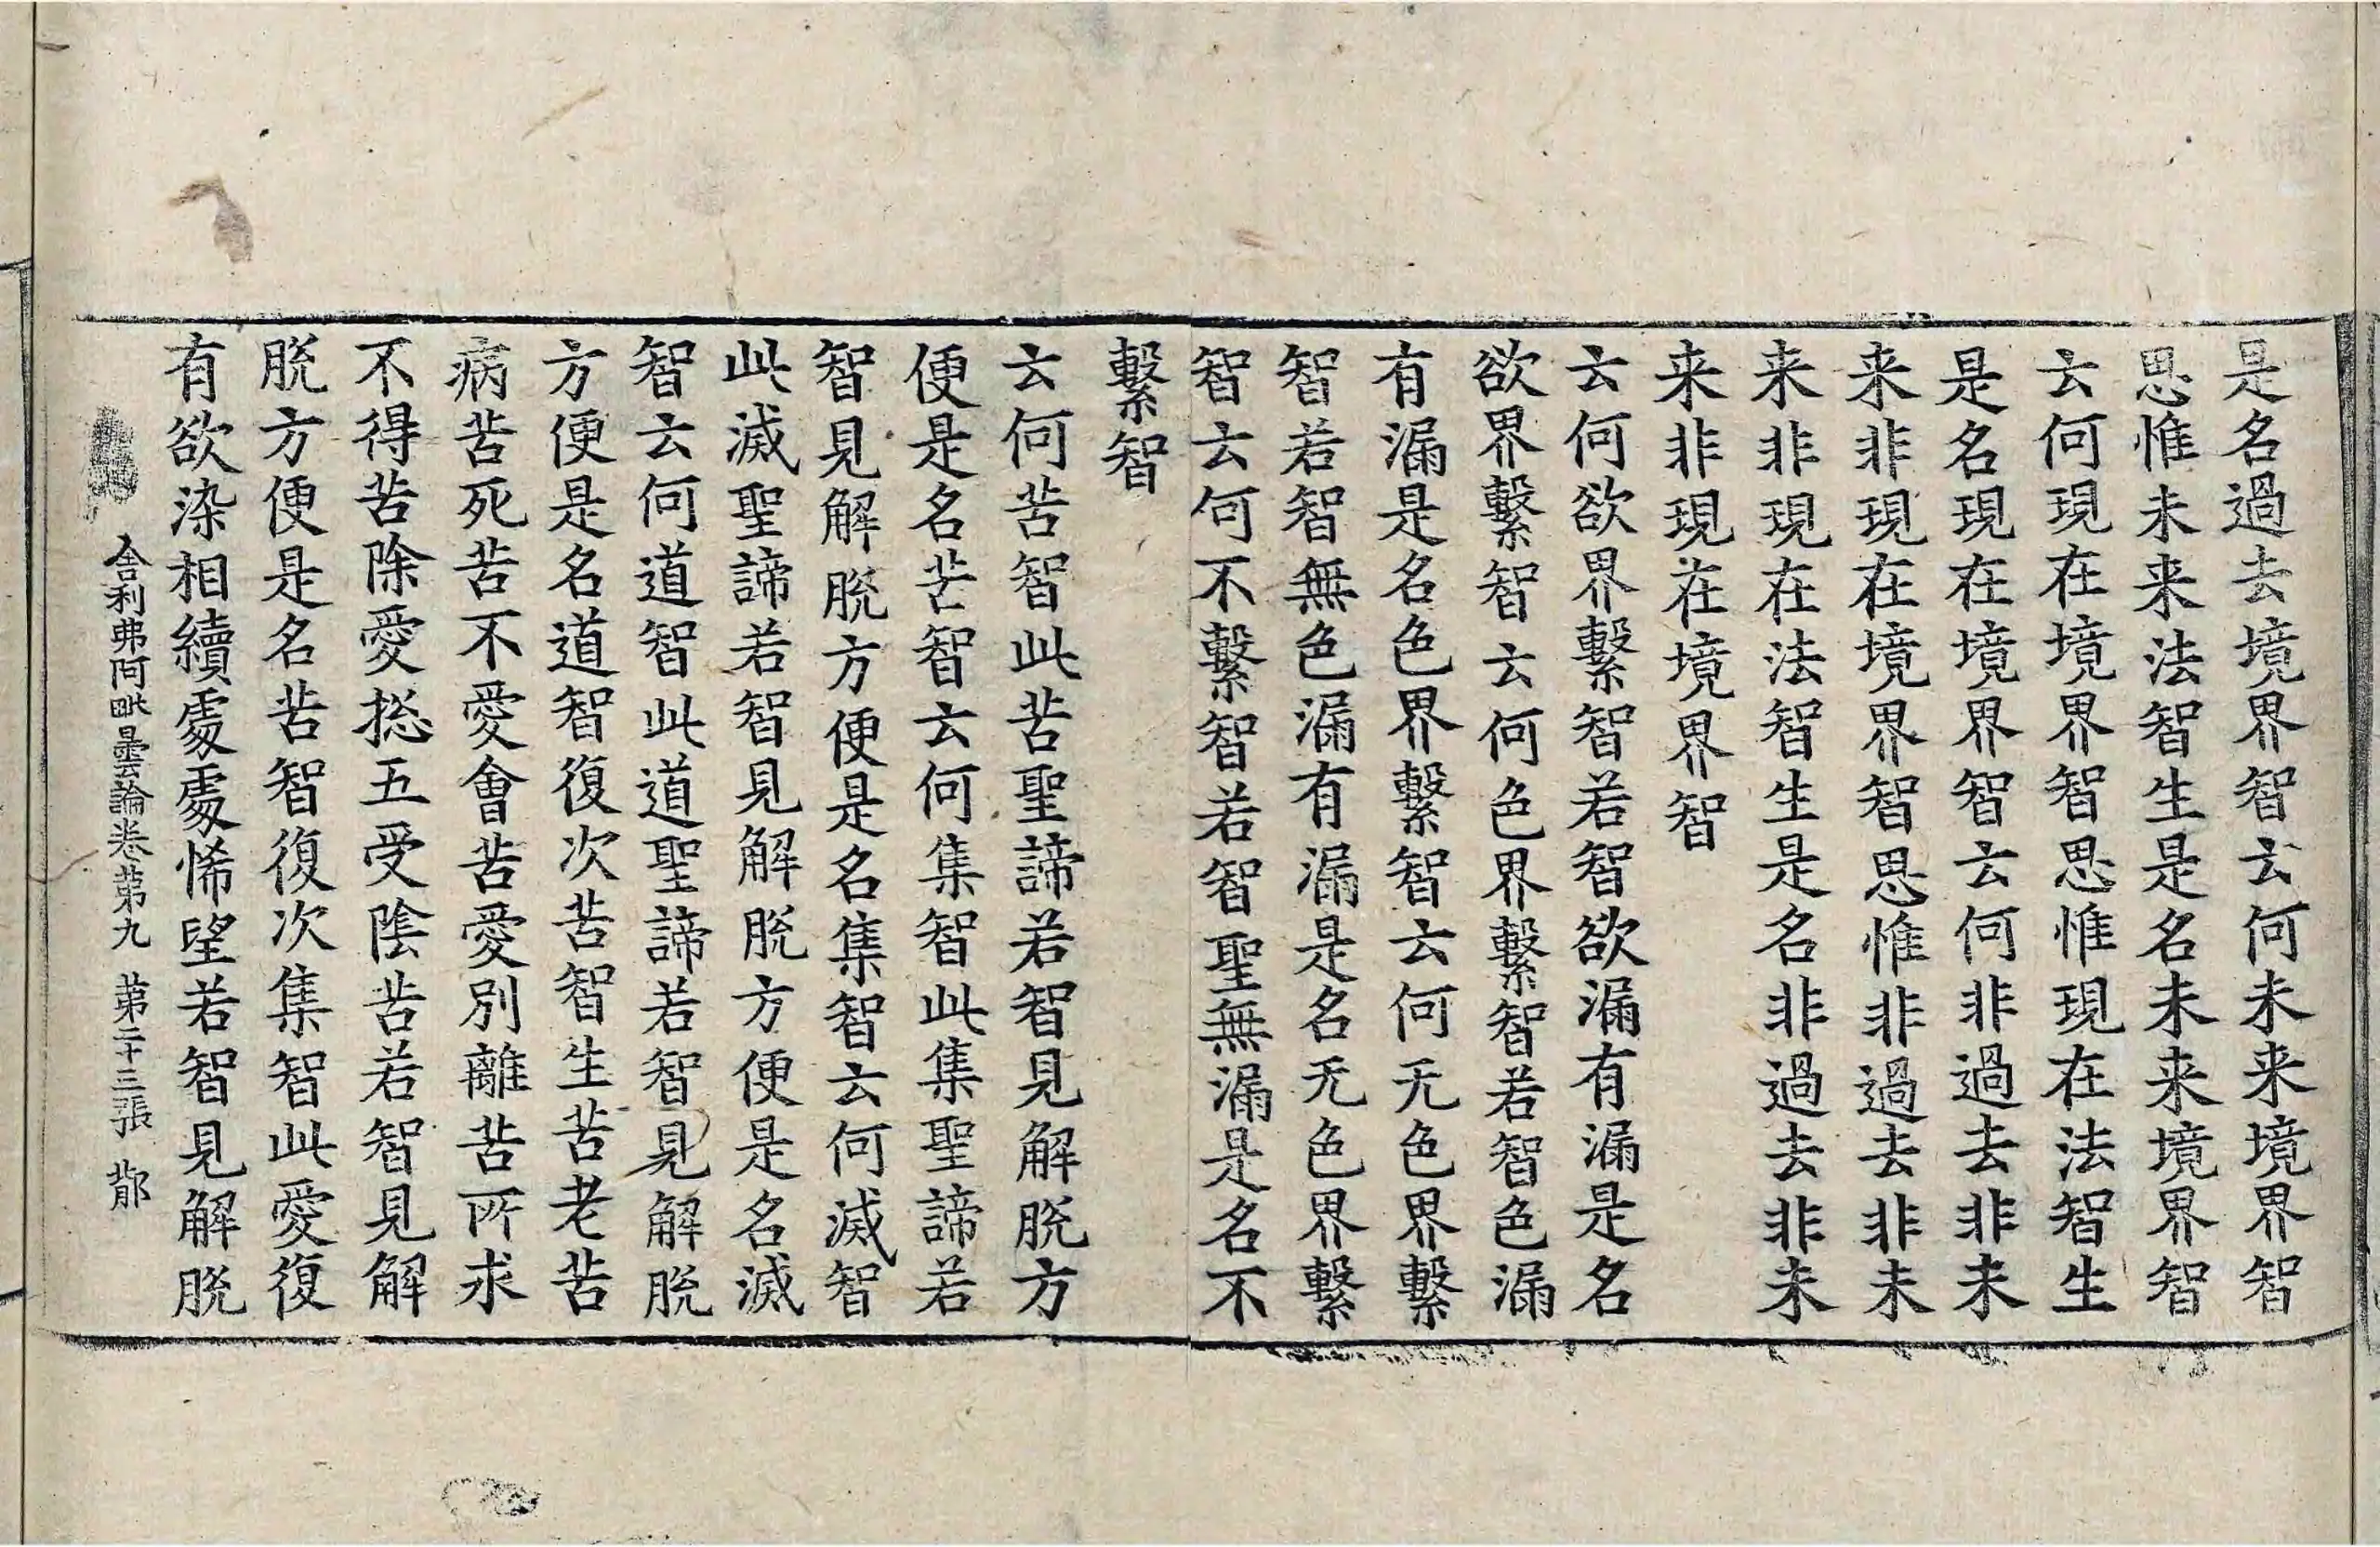 是名過去境界智云何未来境界智
思惟未来法智生是名未来境界智
云何現在境界智思惟現在法智生
是名現在境界智云何非過去非未
来非現在境界智思惟非過去非未
来非現在法智生是名非過去非未
来非現在境界智
云何欲界繫智若智欲漏有漏是名
欲界繫智云何色界繫智若智色漏
有漏是名色界繫智云何无色界繫
智若智無色漏有漏是名无色界繫
智云何不繫智若智聖無漏是名不
繫智
云何苦智此苦聖諦若智見解脱方
便是名苦智云何集智此集聖諦若
智見解脱方便是名集智云何滅智
此滅聖諦若智見解脱方便是名滅
智云何道智此道聖諦若智見解脱
方便是名道智復次苦智生苦老苦
病苦死苦不愛會苦愛別離苦所求
不得苦除愛捴五受陰苦若智見解
脱方便是名苦智復次集智此愛復
有欲染相續處處悕望若智見解脱
舎利弗阿毗曇論卷苐九 苐二十三張 邶